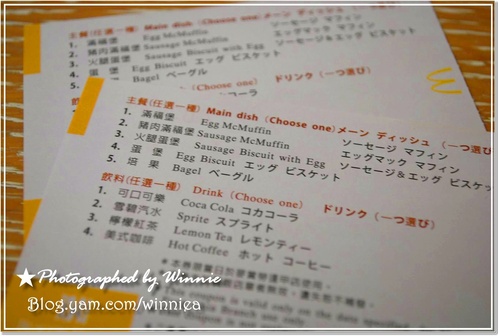 主餐(任選一種) Main dish (Choose one) メーン ディッシュ (一つ選び)
1. 滿福堡 Egg McMuffin ソーセージ マフィン
2. 豬肉滿福堡 Sausage McMuffin エッグマック マフィン
3. 火腿蛋堡 Sausage Biscuit with Egg ソーセージ&エッグ ビスケット
4. 蛋堡 Egg Biscuit エッグ ビスケット
5. 培果 Bagel ベーグル
(Choose one) ドリンク (一つ選び)
コカコーラ
主餐(任選一種) Main dish (Choose one) メーン ディッシュ (一つ選び)
1. 滿福堡 Egg McMuffin ソーセージ マフィン
2. 豬肉滿福堡 Sausage McMuffin エッグマック マフィン
3. 火腿蛋堡 Sausage Biscuit with Egg ソーセージ&エッグ ビスケット
4. 蛋堡 Egg Biscuit エッグ ビスケット
5. 培果 Bagel ベーグル
飲料(任選一種) Drink (Choose one) ドリンク (一つ選び)
1. 可口可樂 Coca Cola コカコーラ
2. 雪碧汽水 Sprite スプライト
3. 檸檬紅茶 Lemon Tea レモンティー
4. 美式咖啡 Hot Coffee ホット コーヒー
Photographed by Winnie
Blog.yam.com/winniea